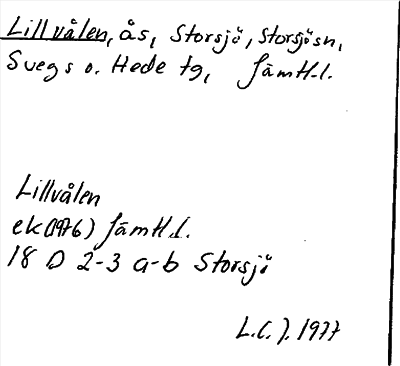 Lillvålen, ås, Storsjö, Storsjösn,
Svegs o. Hede tg, Jämtl.l.
Lillvålen
ek (1976) Jämtl.l.
18 D 2-3 a-b Storsjö
L.C.J. 1977